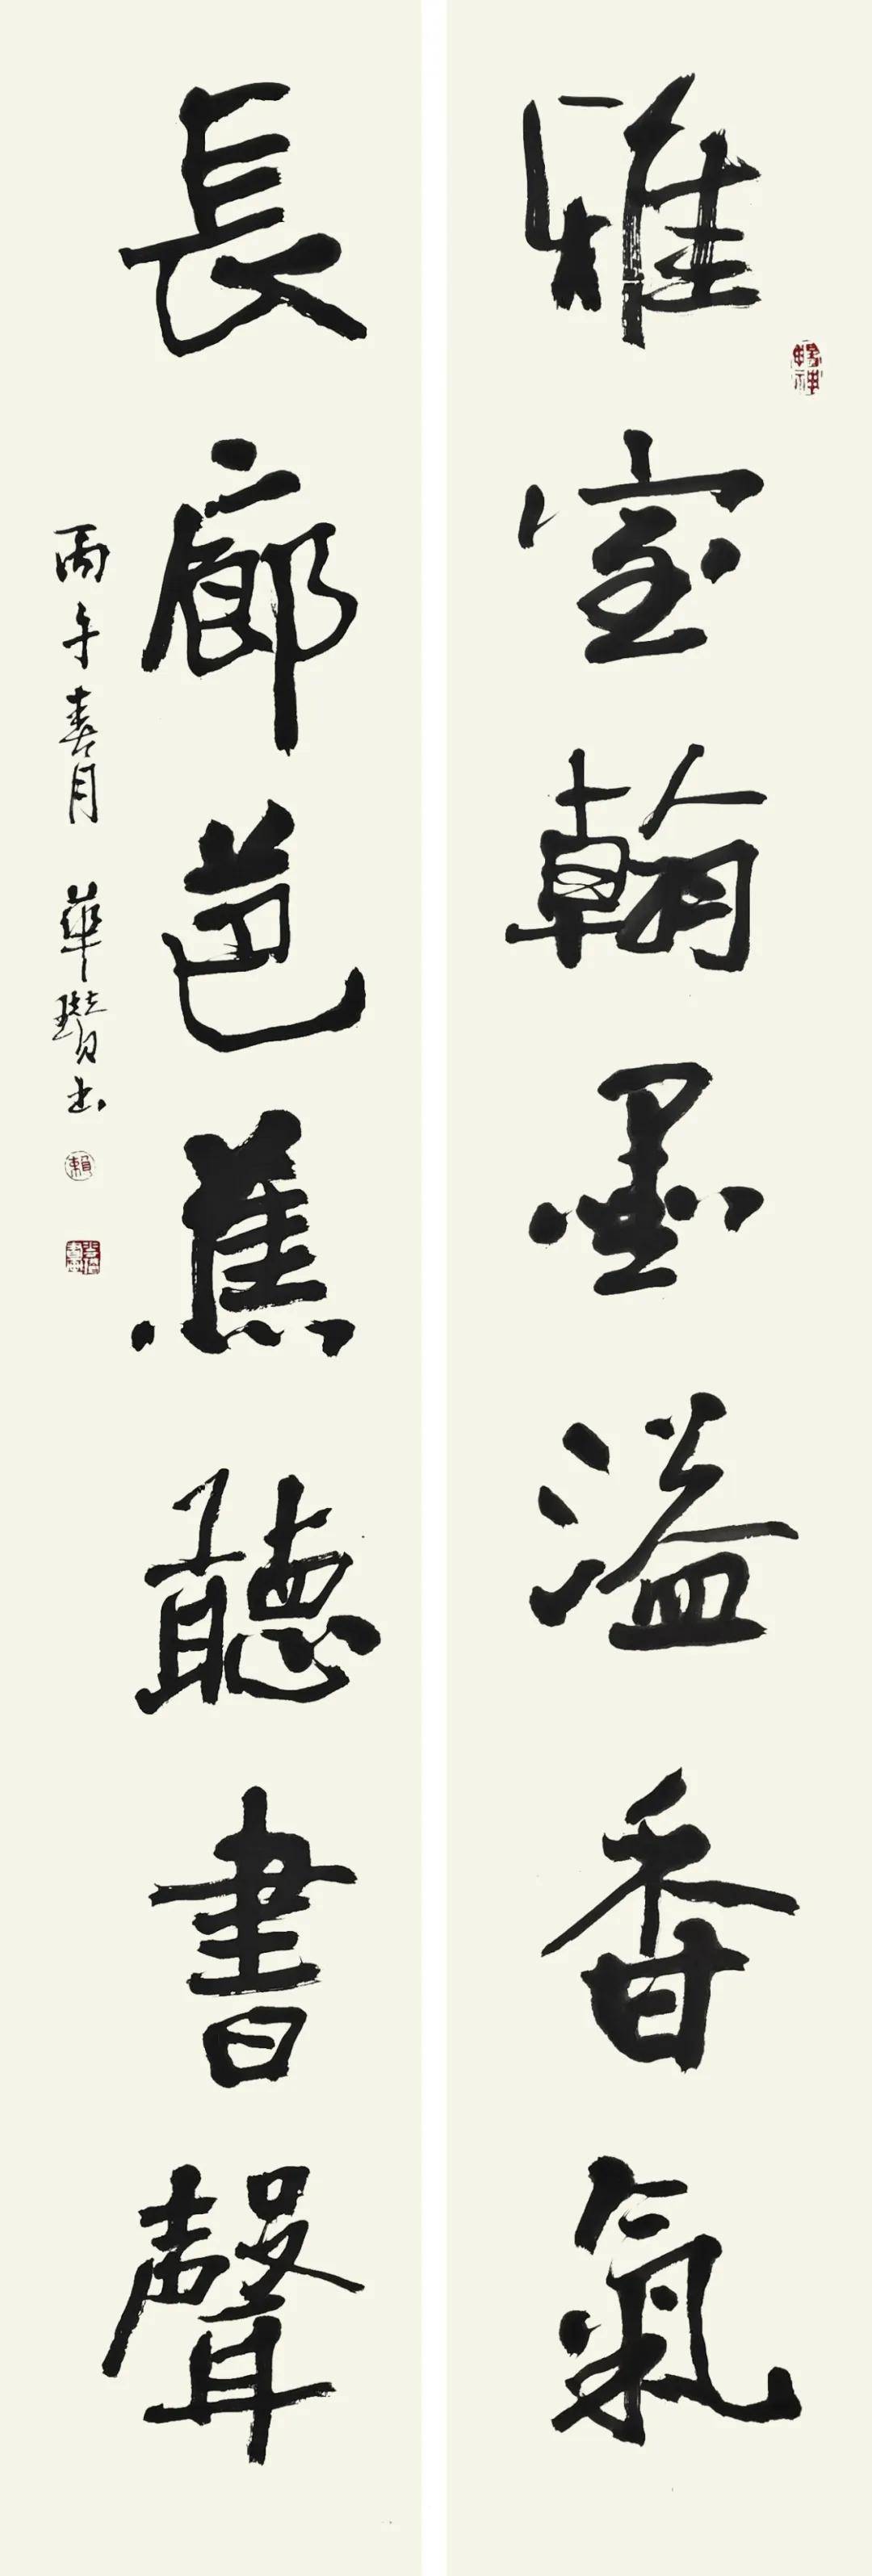 雅室翰墨溢香氣
長廊芭蕉聽書聲
丙午春月 華贊書
賴